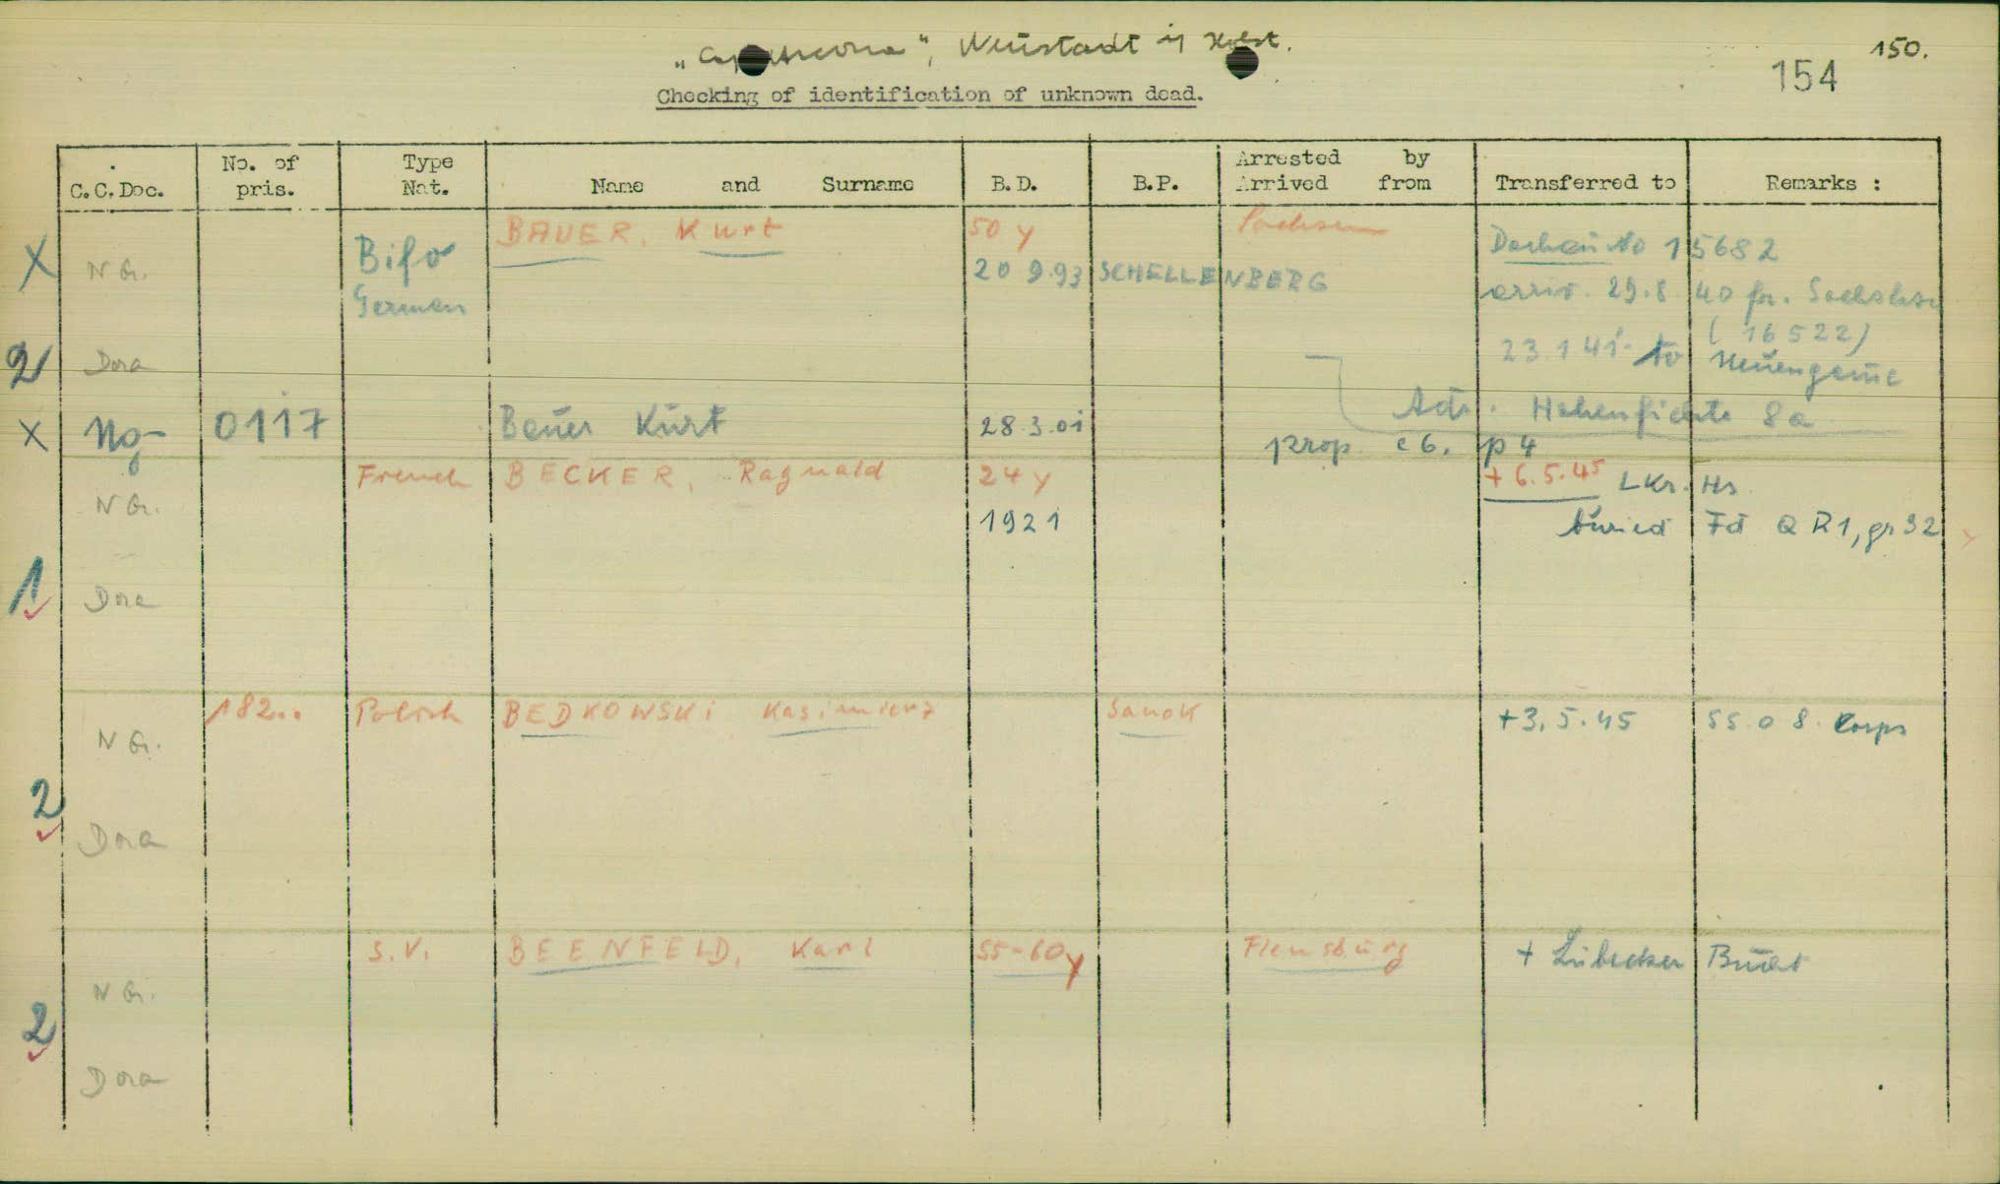 „Cap Arcona", Neustadt i/ Holst.
150.
154
Checking of identification of unknown dead.
C.C.Doc. No. of pris. Type Nat. Name and Surname B.D. B.P. Arrested by Arrived from Transferred to Remarks :
BAUER, Kurt 50 y Sachsen
X N G. Bifo German 20 9.93 SCHELLENBERG Dachau No 15682
arriv. 29.8 40 fr. Sachshsn
(16522)
2 Dora 23 1 41 to Neuengame
Adr. Hohenfichte 8a
X Ng 0117 Bauer Kurt 28.3.01
prop c6. p4
French BECKER, Ragnald 24 y + 6.5.45 LKr. Hs.
N G. 1921 buried Fd Q R1, gr 32
1 Dora
182.. Polish BEDKOWSKI Kasimierz Sanok +3.5.45 SS 0 8. Corps
N G.
2 Dora
S.V. BEENFELD, Karl 55-60y Flensburg + Lübecker Bucht
N G.
2 Dora